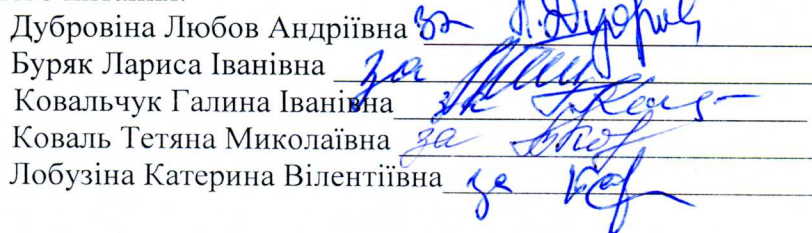 Дубровіна Любов Андріївна за
Буряк Лариса Іванівна за
Ковальчук Галина Іванівна за
Коваль Тетяна Миколаївна за
Лобузіна Катерина Вілентіївна за